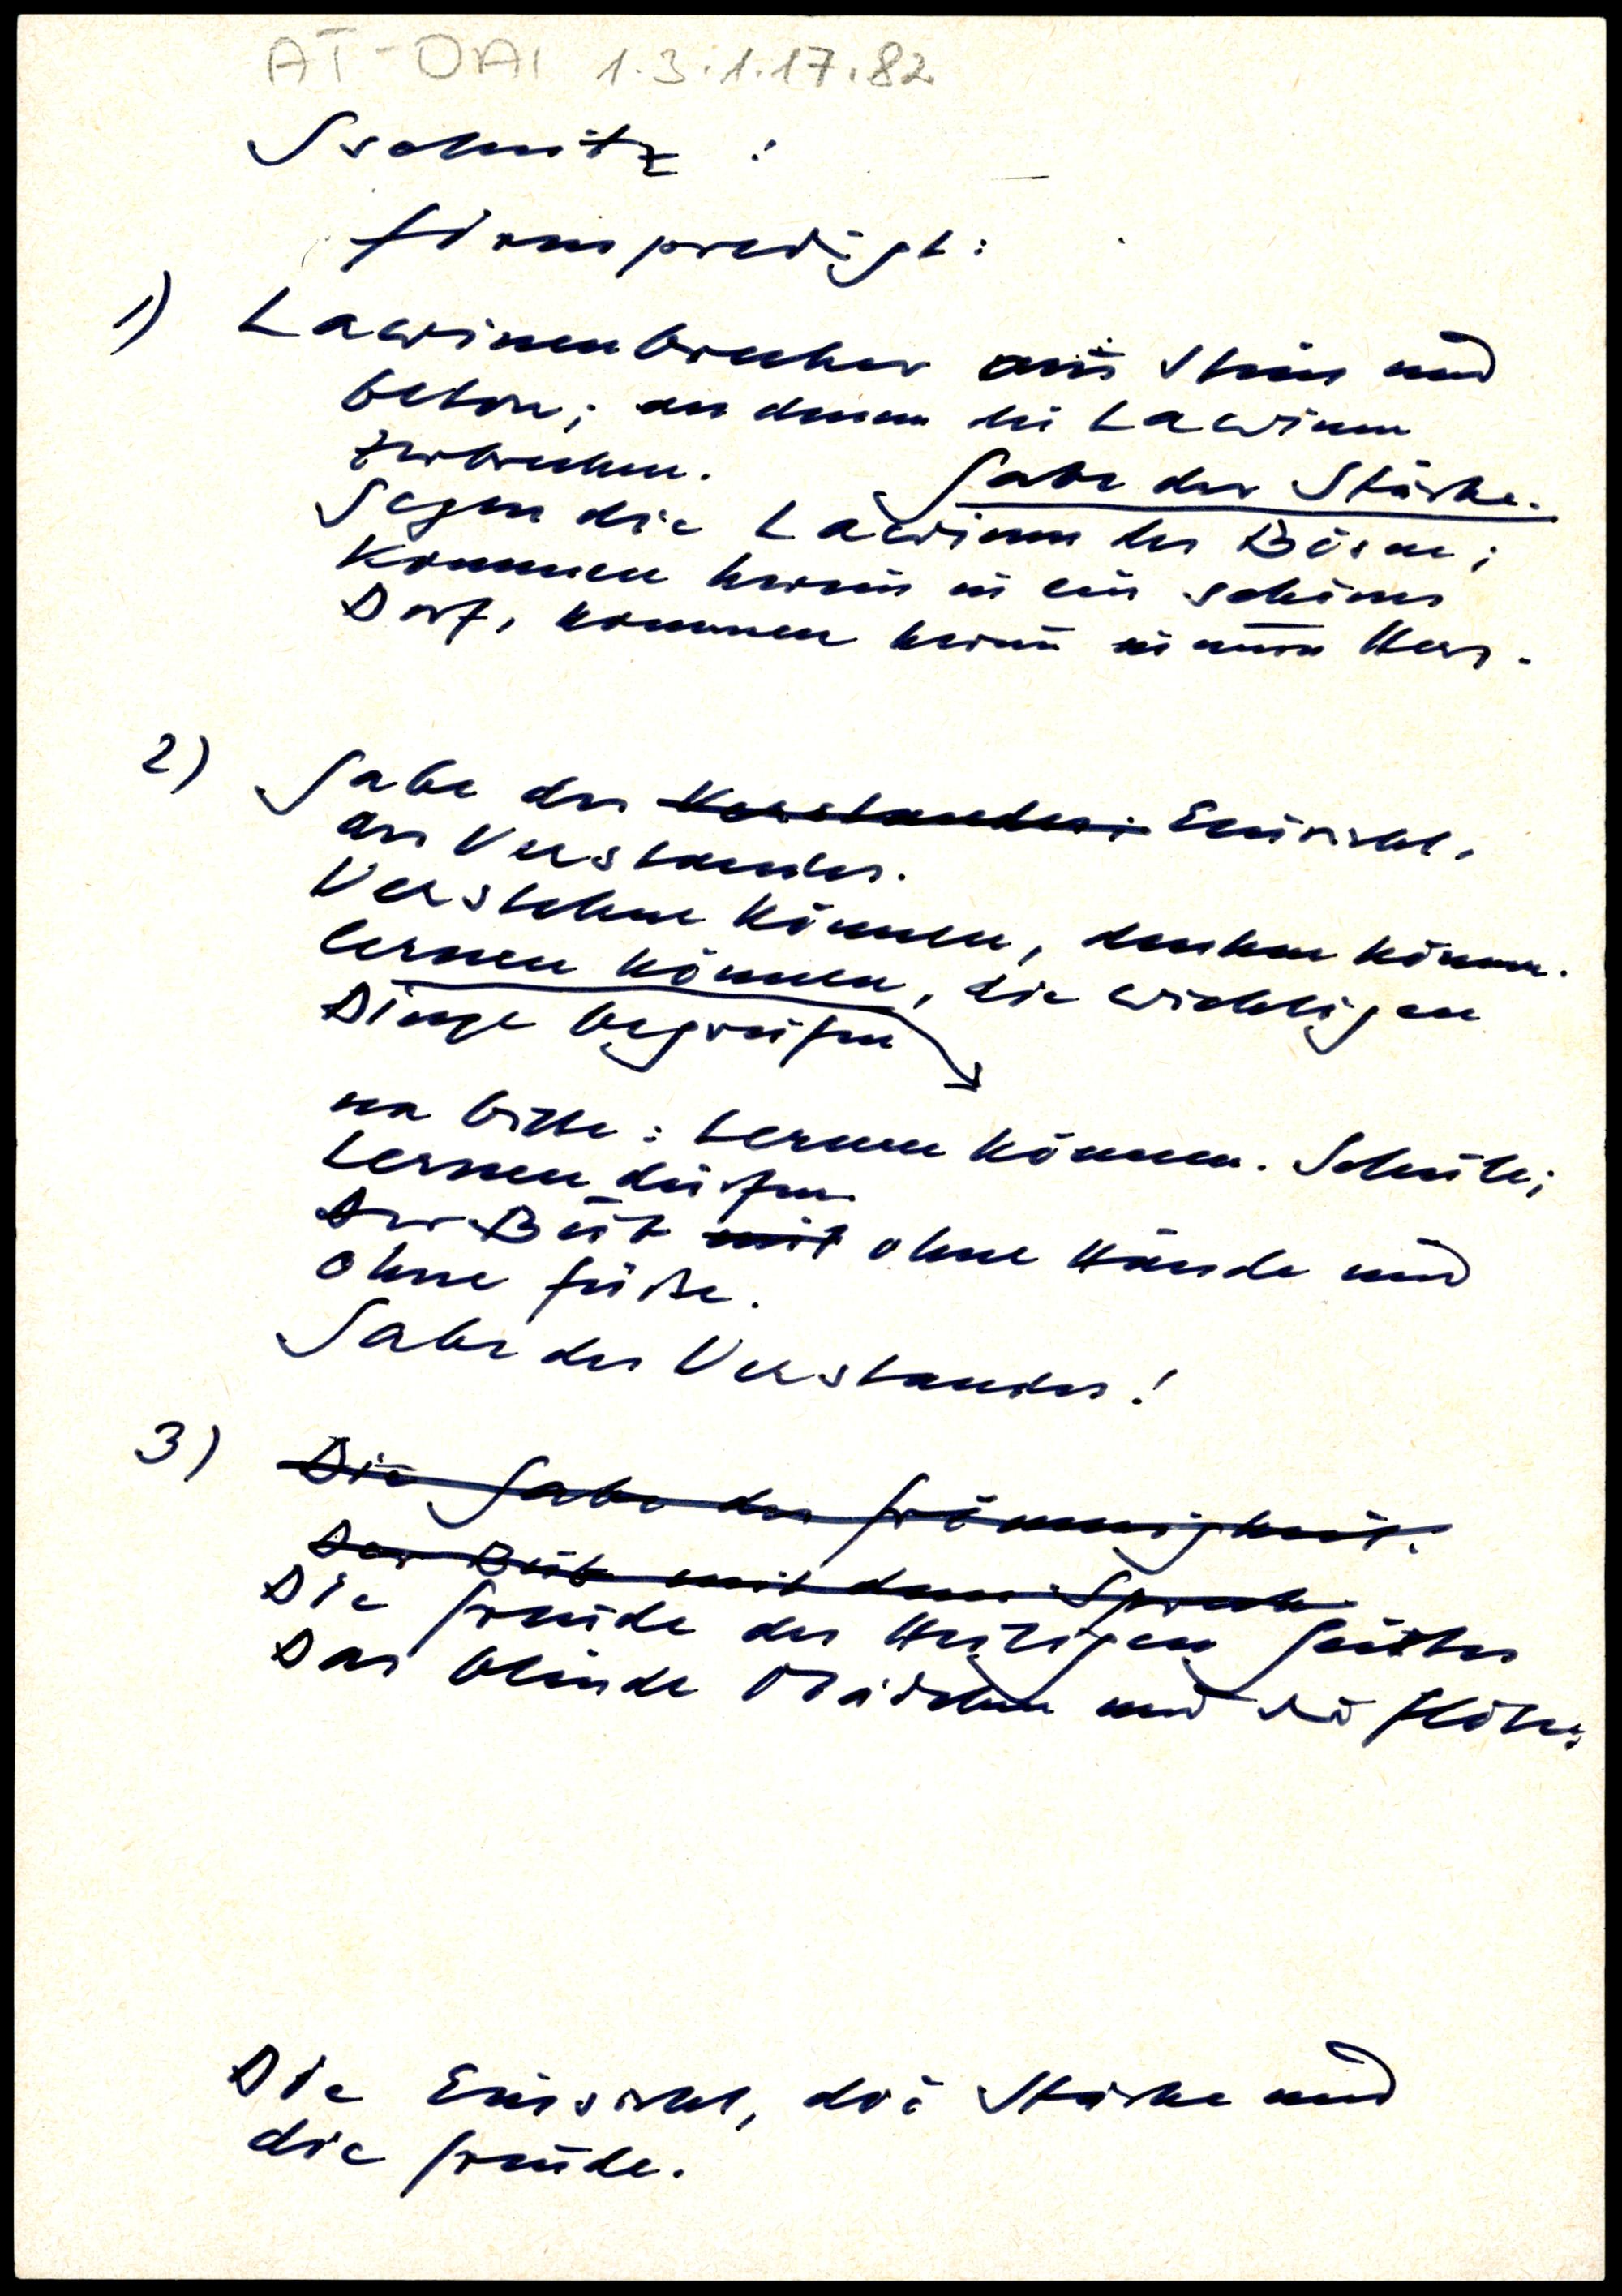 AT-DAI 1.3.1.17.82
Gschnitz:
Firmpredigt:
1) Lawinenbrecher aus Stein und
Beton; an denen die Lawinen
zerbrechen. Gabe der Stärke.
Gegen die Lawinen des Bösen;
kommen herein in ein schönes
Dorf, kommen herein in unser Herz.
2) Gabe der Verstandes; Einsicht,
des Verstandes.
Verstehen können, denken können.
lernen können, die wichtigen
Dinge begreifen
na bitte: Lernen können. Schule;
Lernen dürfen.
Der Bub mit ohne Hände und
ohne Füße.
Gabe des Verstandes!
3) Die Gabe der Frömmigkeit.
Der Bub mit dem
Die Freude des Heiligen Geistes
Das blinde Mädchen und die Flöte.
Die Einsicht, die Stärke und
die Freude.